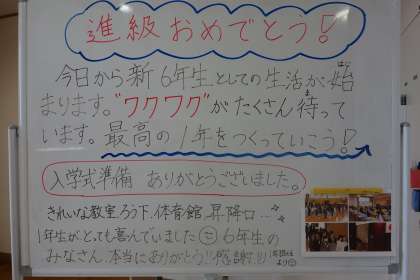 進級おめでとう!
今日から新6年生としての生活が始
まります。"ワクワク"がたくさん待って
います。最高の1年をつくっていこう!
入学式準備 ありがとうございました。
きれいな教室、ろう下、体育館、昇降口…
1年生がとっても喜んでいました 6年生の
みなさん、本当にありがとう!!感謝!!
より